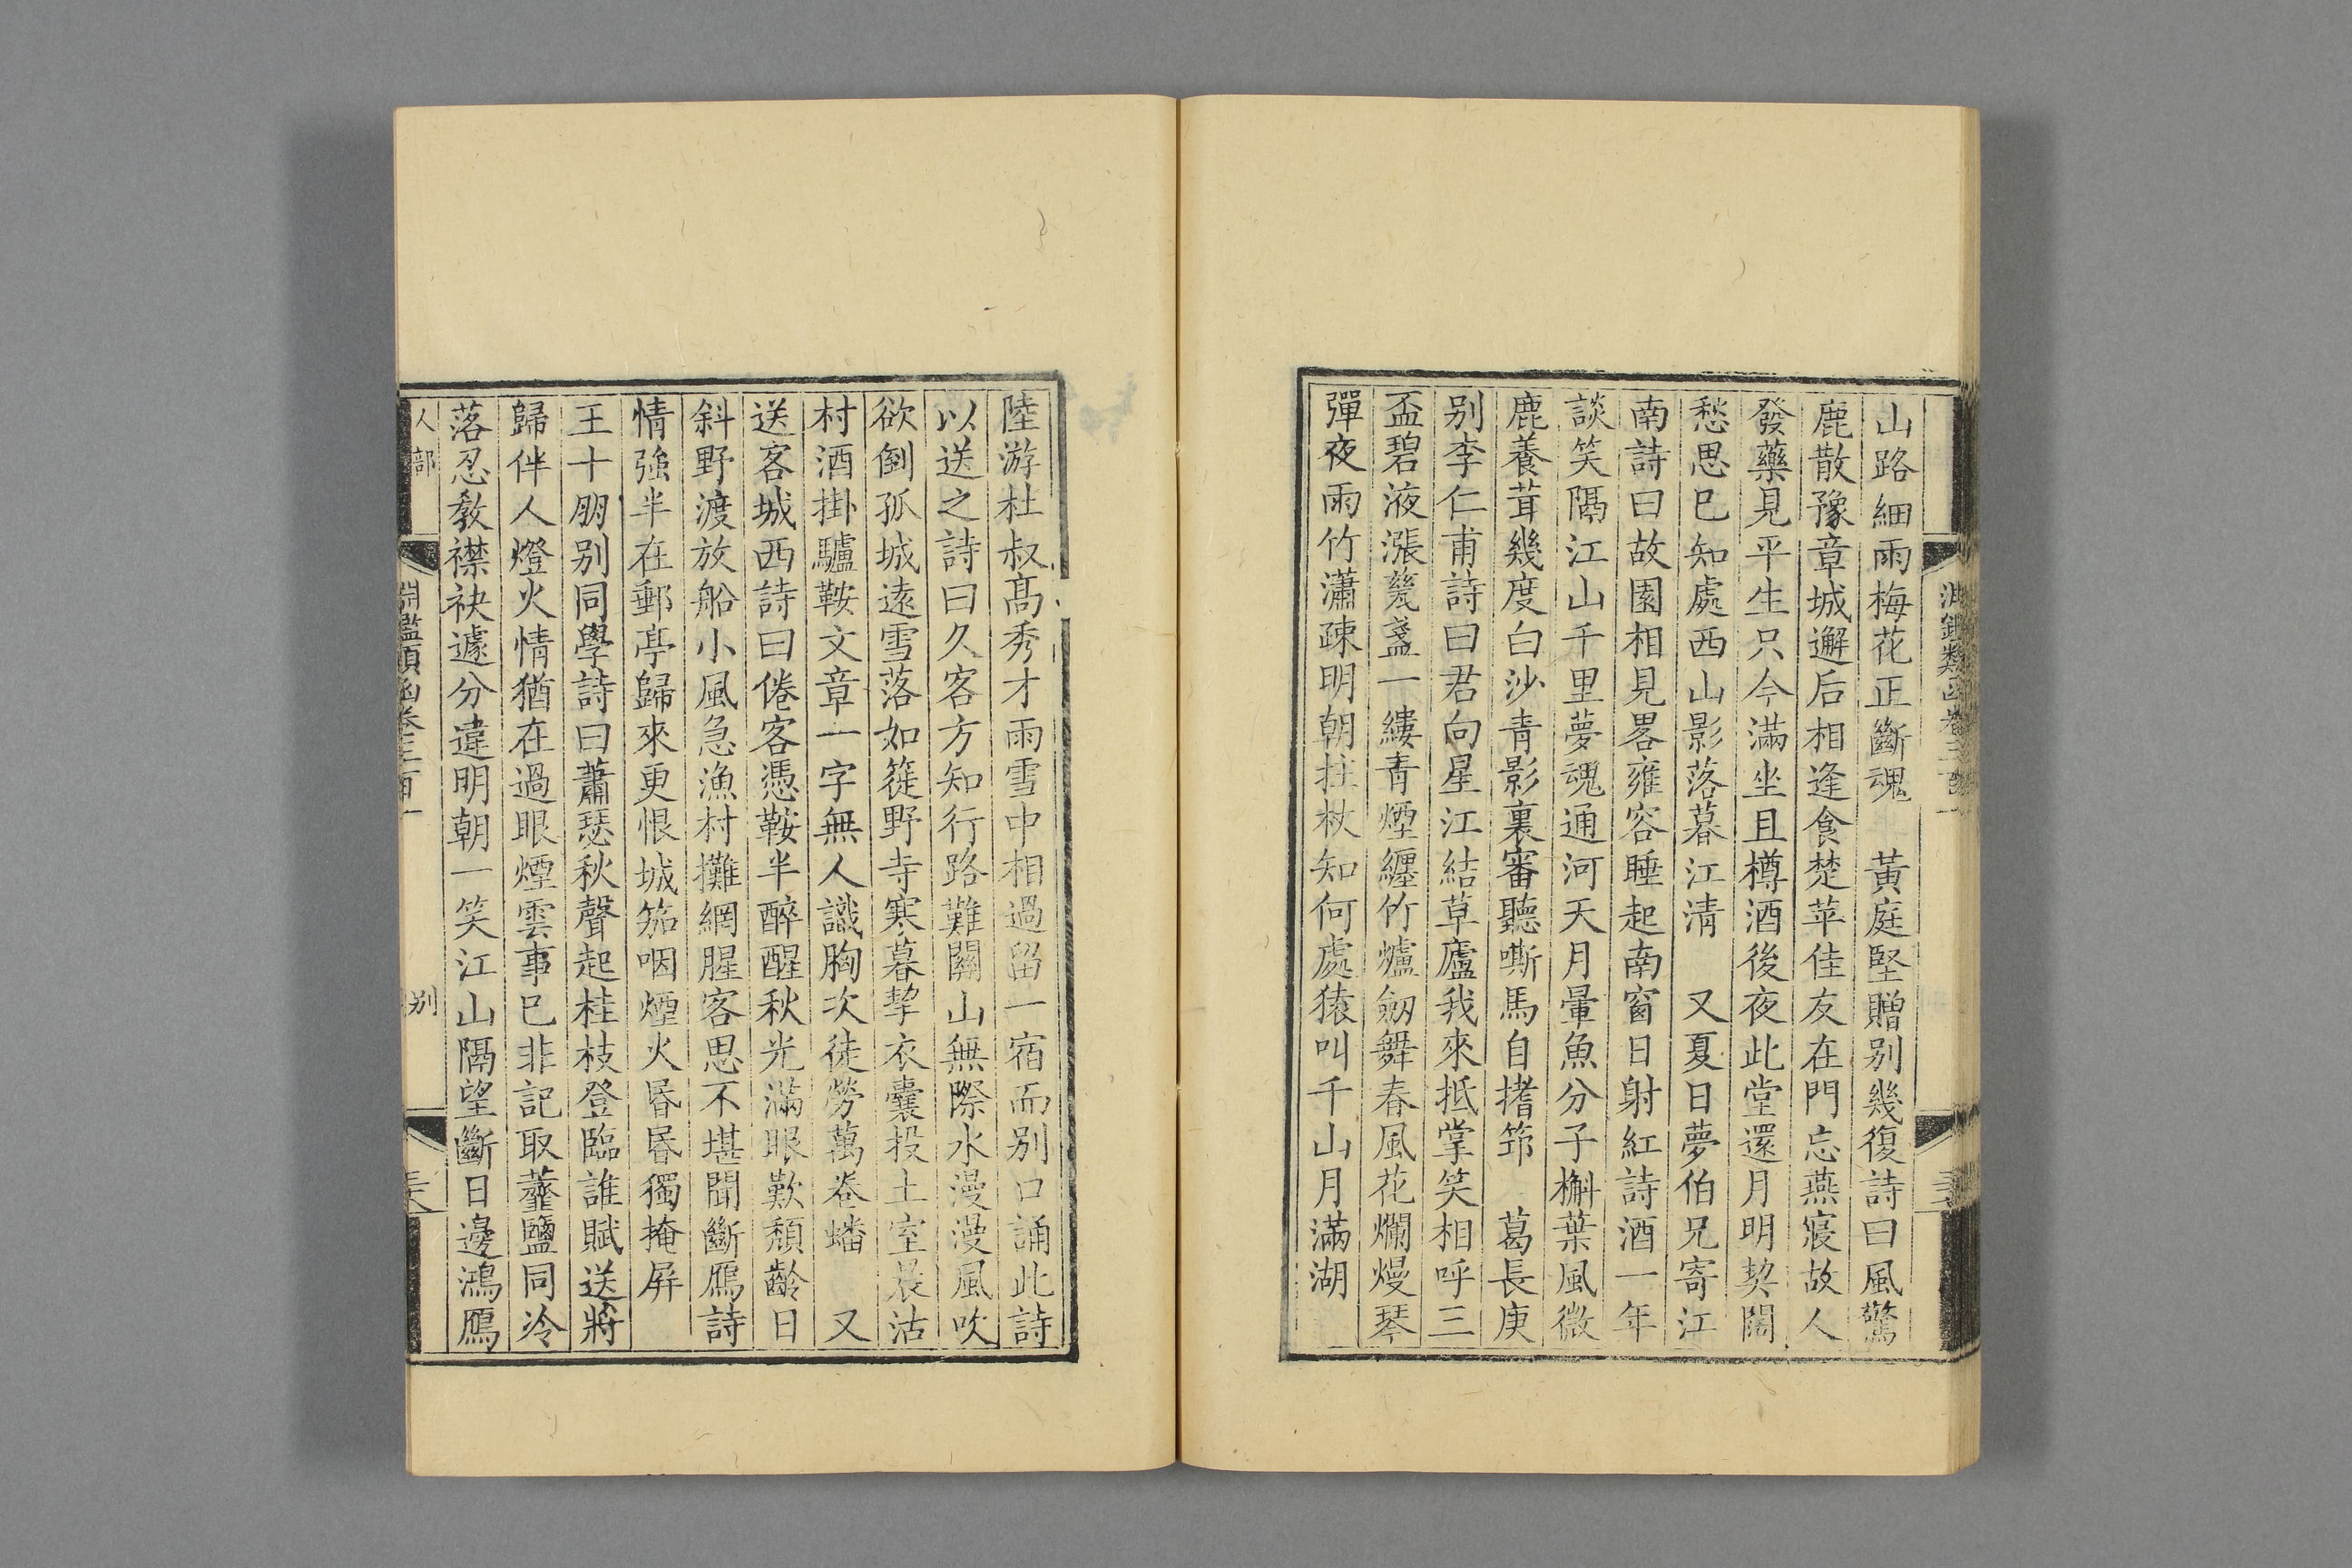 山路細雨梅花正斷魂　黃庭堅贈别幾復詩曰風驚
鹿散豫章城邂后相逢食楚苹佳友在門忘燕寢故人
發藥見平生只今滿坐且樽酒後夜此堂還月明契闊
愁思已知處西山影落暮江清　又夏日夢伯兄寄江
南詩曰故園相見畧雍容睡起南窗日射紅詩酒一年
談笑隔江山千里夢魂通河天月暈魚分子槲葉風微
鹿養茸幾度白沙青影裏審聽嘶馬自搘筇　葛長庚
别李仁甫詩曰君向星江結草廬我來抵掌笑相呼三
盃碧液漲甆盞一縷青煙纏竹爐劒舞春風花爛熳琴
彈夜雨竹瀟疎明朝拄杖知何處猿叫千山月滿湖
陸游杜叔髙秀才雨雪中相過留一宿而别口誦此詩
以送之詩曰久客方知行路難關山無際水漫漫風吹
欲倒孤城遠雪落如簁野寺寒暮挈衣囊投土室晨沽
村酒掛驢鞍文章一字無人識胸次徒勞萬卷蟠　又
送客城西詩曰倦客憑鞍半醉醒秋光滿眼歎頹齡日
斜野渡放船小風急漁村攤網腥客思不堪聞斷鴈詩
情強半在郵亭歸來更恨城笳咽煙火昏昏獨掩屏
王十朋别同學詩曰蕭瑟秋聲起桂枝登臨誰賦送將
歸伴人燈火情猶在過眼煙雲事已非記取虀鹽同冷
落忍教襟袂遽分違明朝一笑江山隔望斷日邊鴻鴈
人部
淵鑑類函卷三百一
别